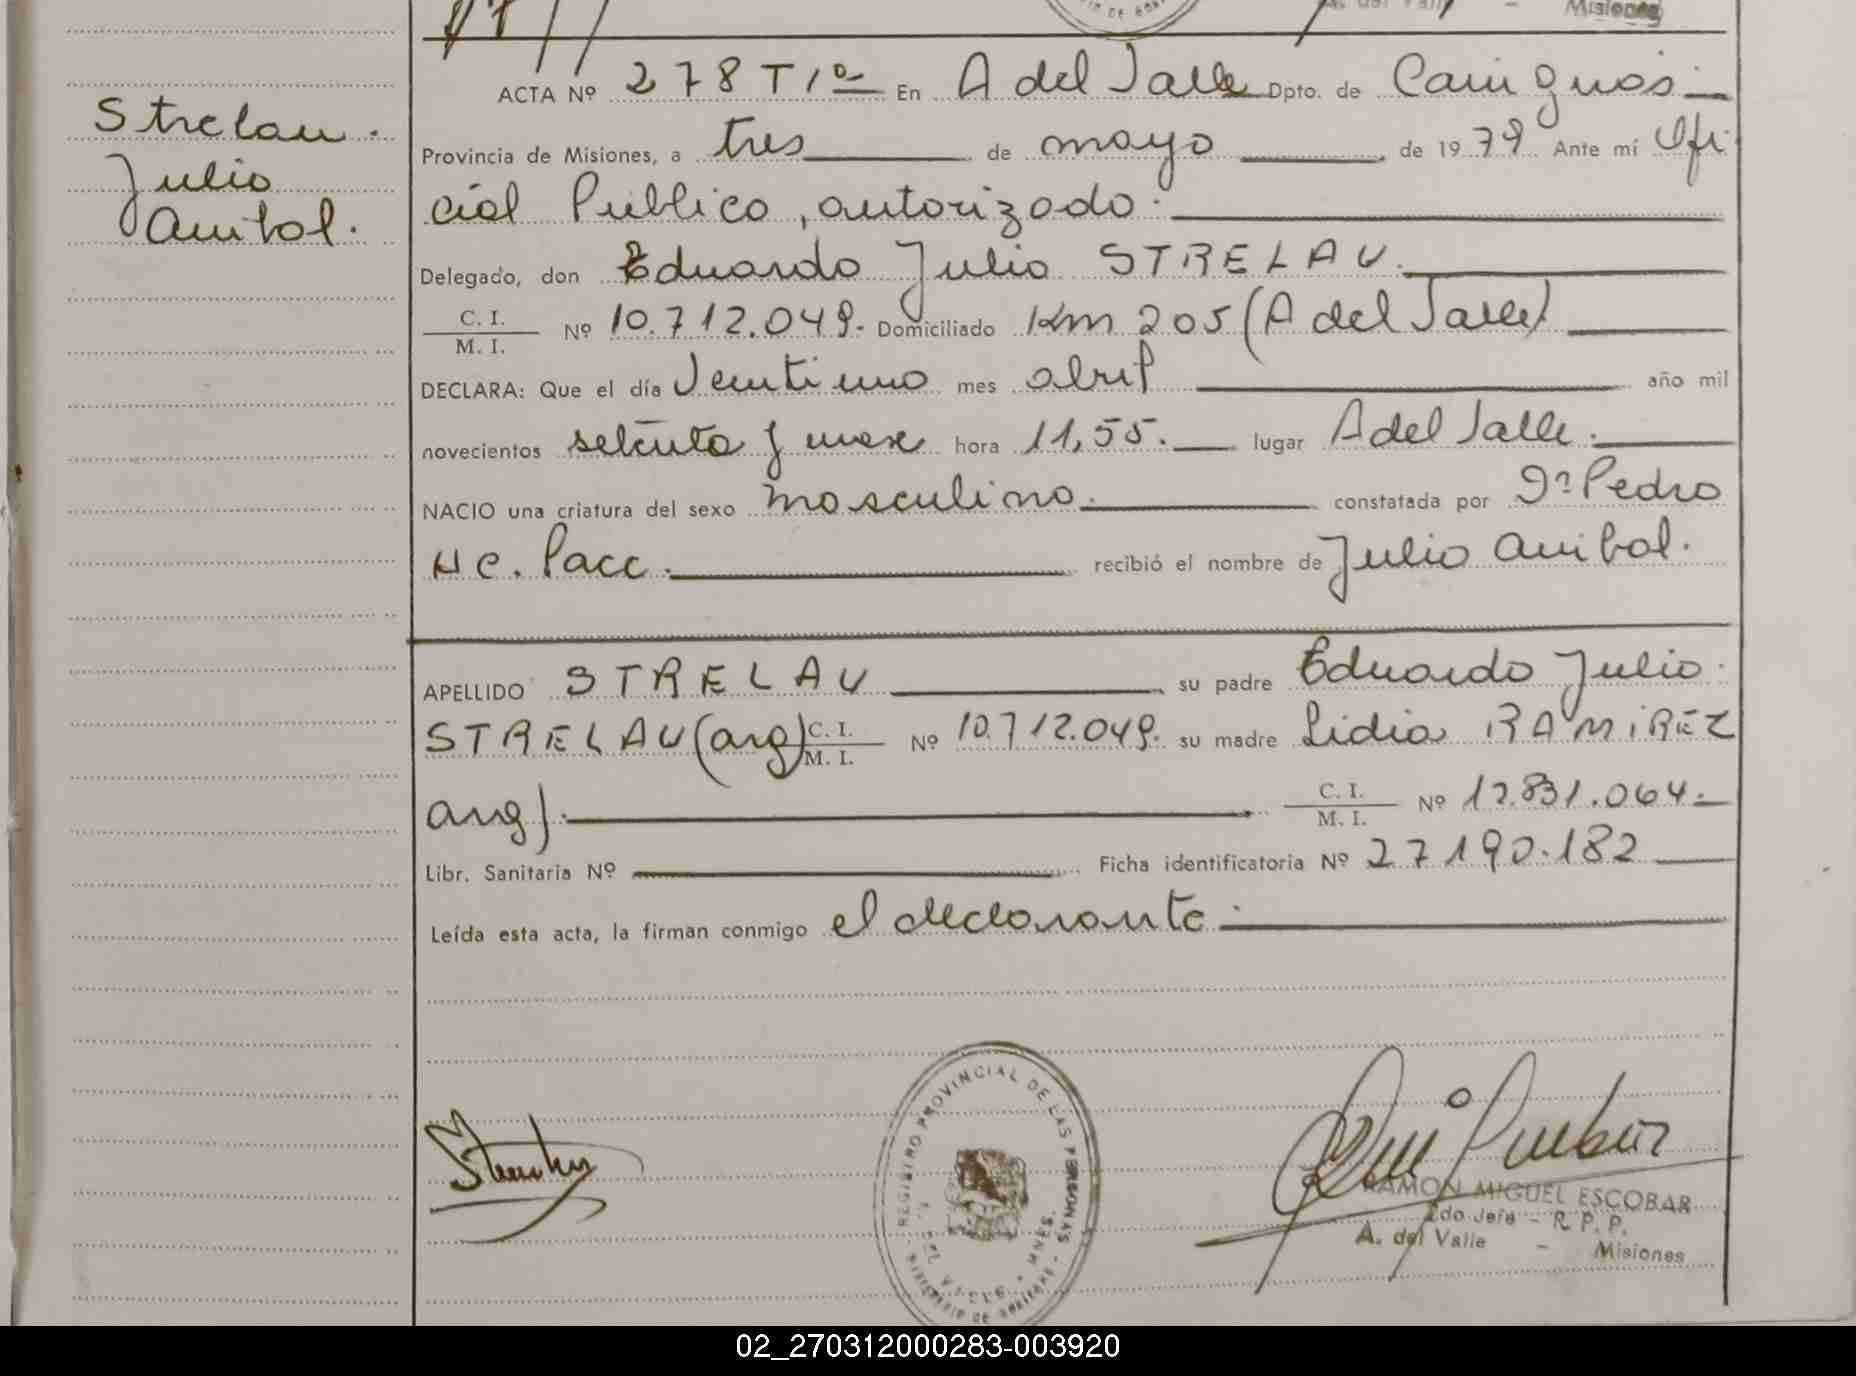 Misiones
ACTA Nº 278 T 1º En A del Valle Dpto. de Cainguás
Strelau
Provincia de Misiones, a tres de mayo de 1979 Ante mí Ofi
Julio
cial Público, autorizado.
Anibal.
Delegado, don Eduardo Julio STRELAU.
C. I.
M. I. Nº 10.712.049. Domiciliado Km 205 (A del Valle)
DECLARA: Que el día Veintiuno mes abril año mil
novecientos setenta y nueve hora 11,55. lugar A del Valle.
NACIO una criatura del sexo masculino. constatada por Dº Pedro
recibió el nombre de Julio Anibal.
APELLIDO STRELAU su padre Eduardo Julio
STRELAU (arg) C. I.
M. I. Nº 10.712.049. su madre Lidia RAMIREZ
arg). C. I.
M. I. Nº 12.831.064.
Libr. Sanitaria Nº Ficha identificatoria Nº 27190.182
Leída esta acta, la firman conmigo el declarante.
REGISTRO PROVINCIAL DE LAS PERSONAS
RAMON MIGUEL ESCOBAR
2do Jefe - R. P. P.
A. del Valle - Misiones
02_270312000283-003920